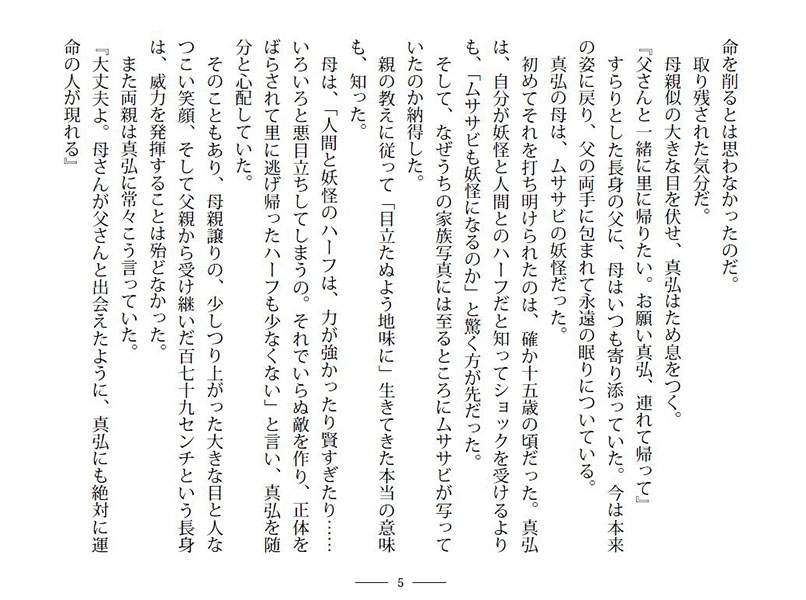 命を削るとは思わなかったのだ。
　取り残された気分だ。
　母親似の大きな目を伏せ、真弘はため息をつく。
『父さんと一緒に里に帰りたい。お願い真弘、連れて帰って』
　すらりとした長身の父に、母はいつも寄り添っていた。今は本来
の姿に戻り、父の両手に包まれて永遠の眠りについている。
　真弘の母は、ムササビの妖怪だった。
　初めてそれを打ち明けられたのは、確か十五歳の頃だった。真弘
は、自分が妖怪と人間とのハーフだと知ってショックを受けるより
も、「ムササビも妖怪になるのか」と驚く方が先だった。
　そして、なぜうちの家族写真には至るところにムササビが写って
いたのか納得した。
　親の教えに従って「目立たぬよう地味に」生きてきた本当の意味
も、知った。
　母は、「人間と妖怪のハーフは、力が強かったり賢すぎたり……
いろいろと悪目立ちしてしまうの。それでいらぬ敵を作り、正体を
ばらされて里に逃げ帰ったハーフも少なくない」と言い、真弘を随
分と心配していた。
　そのこともあり、母親譲りの、少しつり上がった大きな目と人な
つこい笑顔、そして父親から受け継いだ百七十九センチという長身
は、威力を発揮することは殆どなかった。
　また両親は真弘に常々こう言っていた。
『大丈夫よ。母さんが父さんと出会えたように、真弘にも絶対に運
命の人が現れる』
5